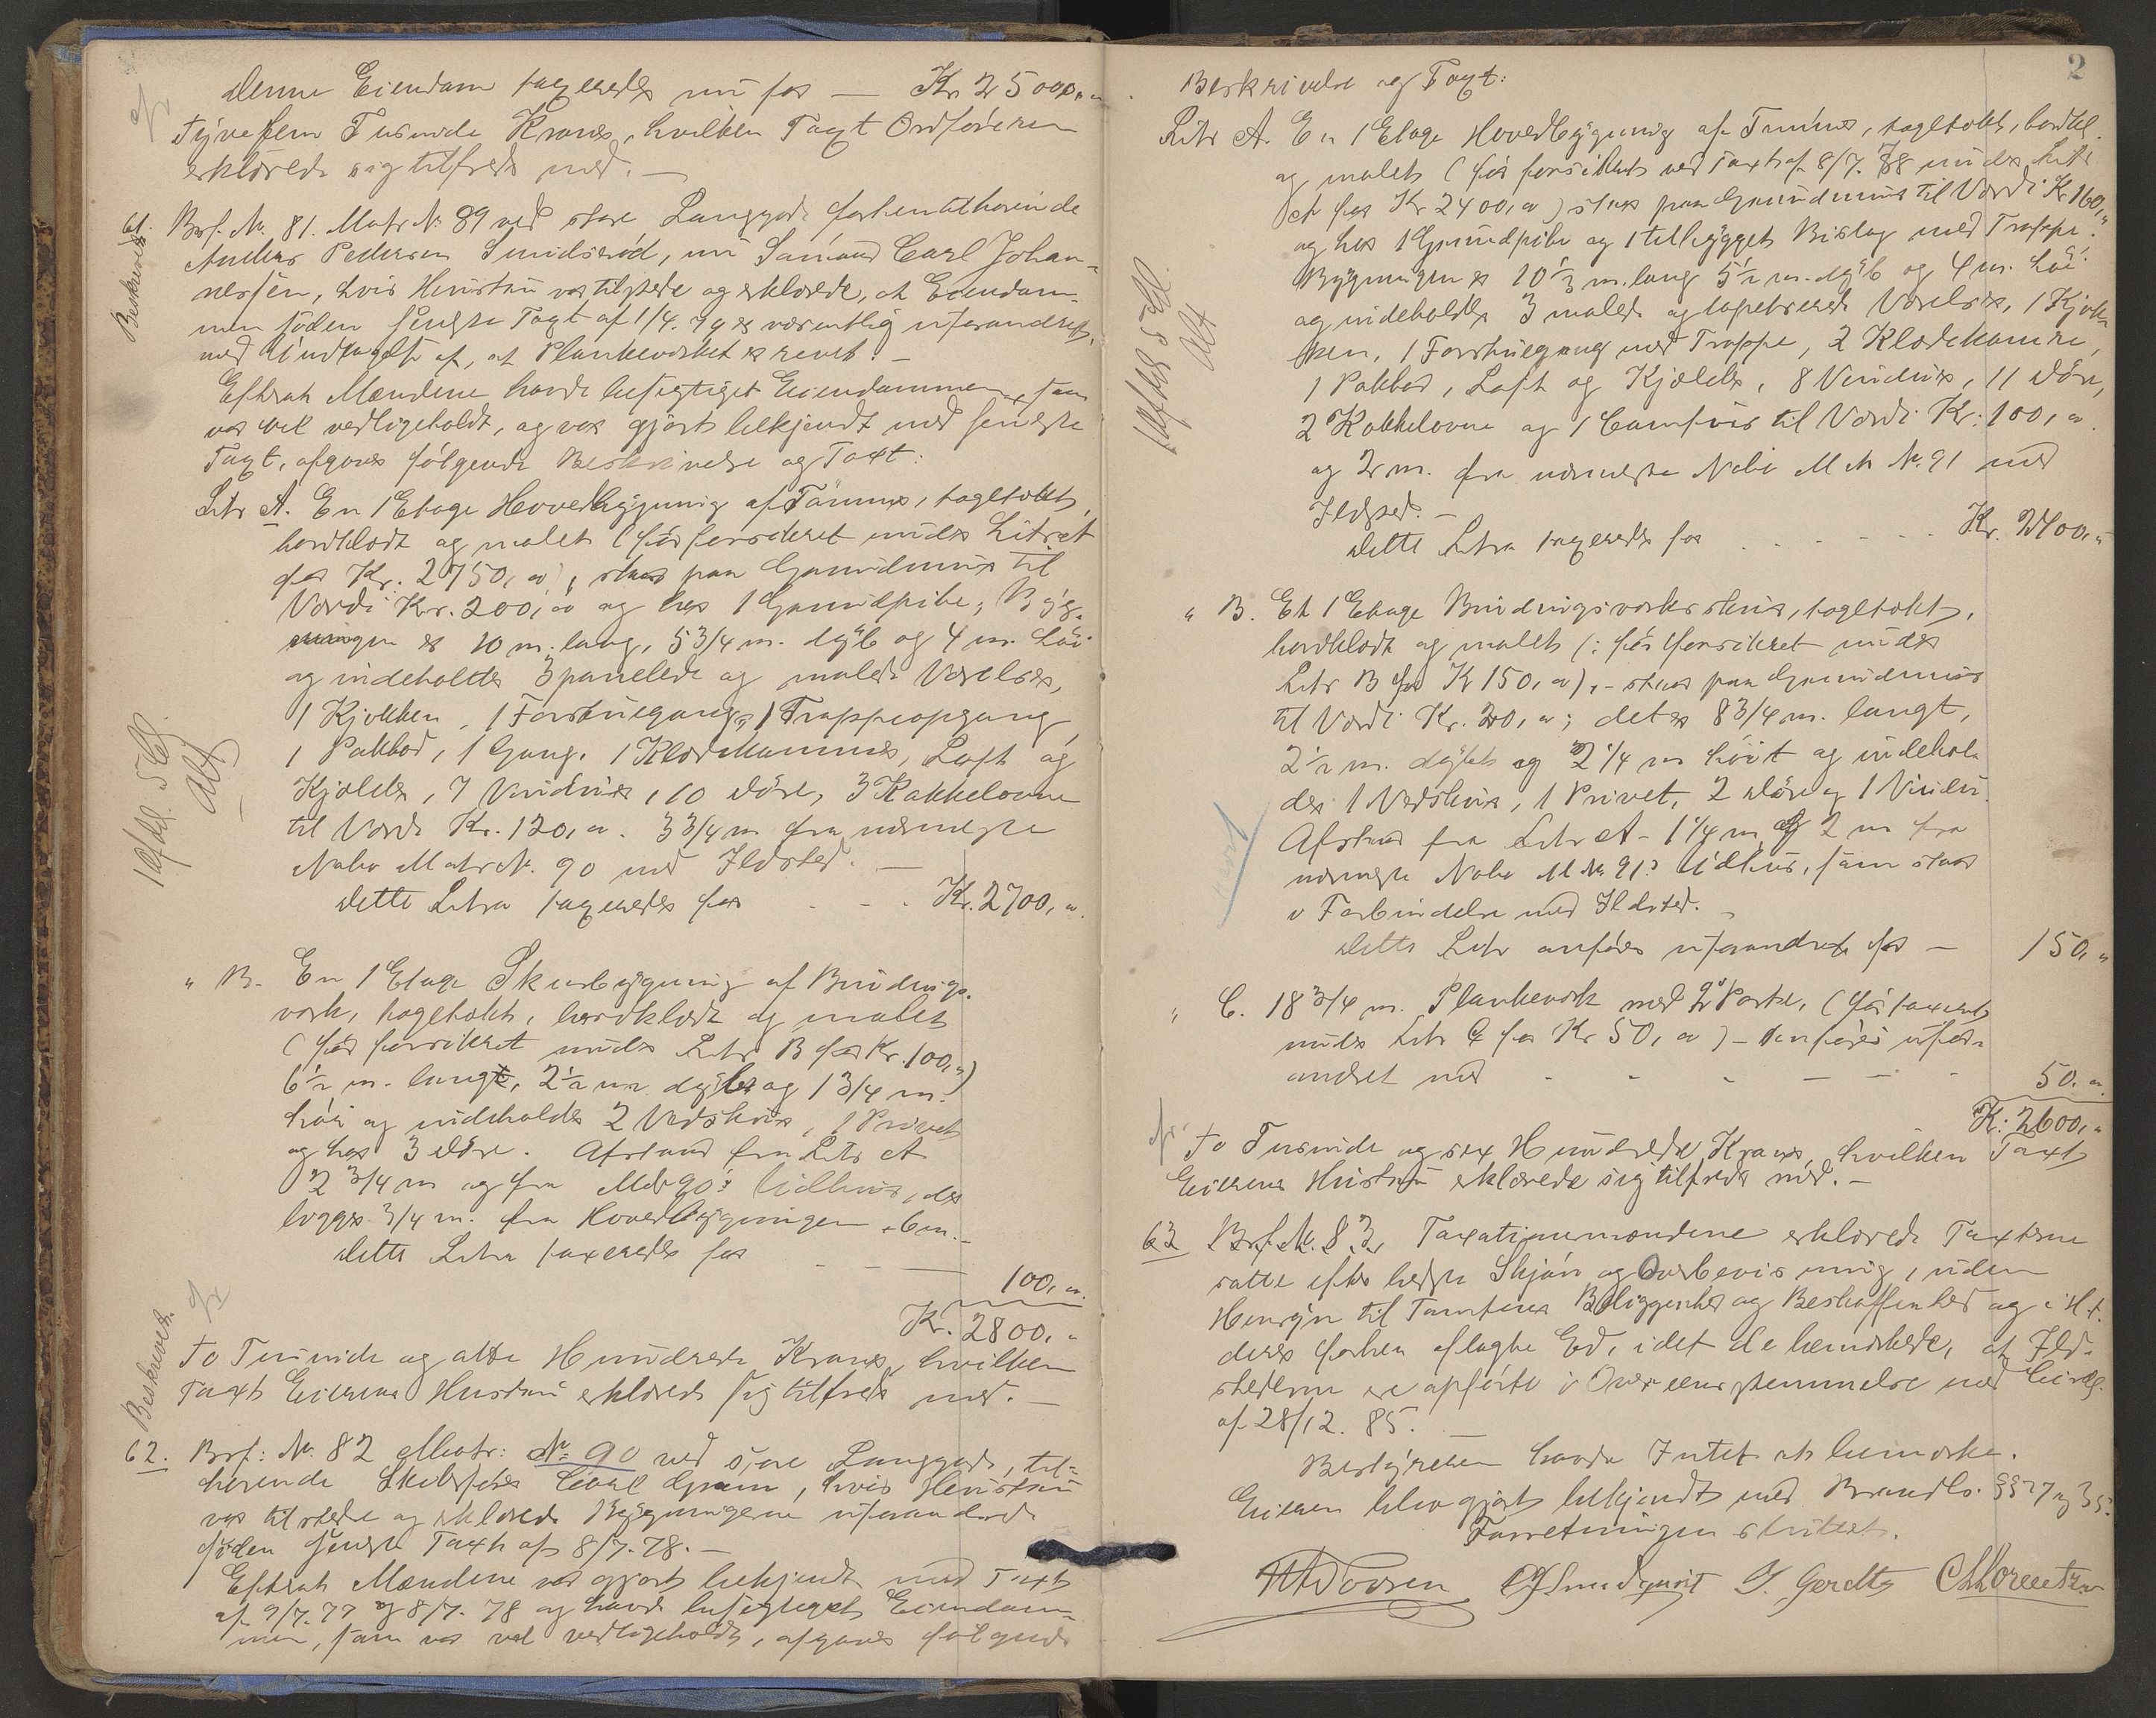 denne Eiendom taxeredes nu for — Kr. 25000,"
Tyvefem Tusinde Kroner, hvilken Taxt Ordføreren
erklærede sig tilfreds med. —
61. Brf. No. 81. Matr. No. 89 ved store Langgade forhen tilhørende
Anders Pedersen Smidsrød, nu Sømand Carl Johan-
nessen, hvis Hustru var tilstede og erklærede, at Eiendom-
men siden seneste Taxt af 1/4. 79 er væsentlig uforandret,
med Undtagelse af, at Plankeværket er revet. —
Beskrevet
Efterat Mændene havde besigtiget Eiendommen, som
var vel vedligeholdt, og var gjort bekjendt med seneste
Taxt, afgaves følgende Beskrivelse og Taxt:
Litr. A. En 1 Etage Hovedbygning af Tømmer, tagtækt,
bordklædt og malet (før forsikret under Litra A
for Kr. 2750,00), staar paa Grundmur til
Værdi Kr. 200,00 og har 1 Grundpibe; Byg-
ningen er 10 m. lang, 5 3/4 m. dyb og 4 m. høi
og indeholder 3 panelede og malede Værelser,
1 Kjøkken, 1 Forstuegang, 1 Trappeopgang,
1 Pakbod, 1 Gang, 1 Klædekammer, Loft og
Kjælder, 7 Vinduer, 10 Døre, 3 Kakkelovne
til Værdi Kr. 120,00. 3 3/4 m fra nærmeste
Nabo Matr. No. 90 med Ildsted. —
1 Afdel. 5 Kl.
Alt
dette Litra taxeredes for - - - Kr. 2700,"
" B. En 1 Etage Skurbygning af Bindings-
værk, tagtækt, bordklædt og malet
(før forsikret under Litr B for Kr. 100,")
6 1/2 m. lang, 2 1/2 m dyb og 1 3/4 m.
høi og indeholder 2 Vedskur, 1 Privet
og har 3 Døre. Afstand fra Litr A
2 3/4 m og fra M No 90's Udhus, der
ligger 3/4 m. fra Hovedbygningen, 6 m. —
dette Litra taxeredes for - - — 100,"
Kr. 2800,"
To Tusinde og otte Hundrede Kroner, hvilken
Taxt Eierens Hustru erklærede sig tilfreds med. —
Beskrevet.
62. Brf: No. 82 Matr: No. 90 ved store Langgade, til-
hørende Skibsfører Gram, hvis Hustru
var tilstede og erklærede Bygningerne uforandrede
siden seneste Taxt af 8/7. 78. —
Efterat Mændene var gjort bekjendt med Taxt
af 9/7. 77 og 8/7. 78 og havde besigtiget Eiendom-
men, som var vel vedligeholdt, afgaves følgende
2
Beskrivelse og Taxt:
Litr A. En 1 Etage Hovedbygning af Tømmer, tagtækt, bordkl.
og malet (før forsikret ved Taxt af 8/7. 78 under Litr
A for Kr 2400,00) staar paa Grundmur til Værdi Kr 160,"
og har 1 Grundpibe og 1 tilbygget Bislag med Trappe.
Bygningen er 10 1/3 m. lang 5 1/2 m. dyb og 4 m. høi
og indeholder 3 malede og tapetserede Værelser, 1 Kjøk-
ken, 1 Forstuegang med Trappe, 2 Klædekamre,
1 Pakbod, Loft og Kjælder, 8 Vinduer, 11 Døre,
2 Kakkelovne og 1 Comfur til Værdi Kr: 100,00
og 2 m. fra nærmeste Nabo M No. 91 med
Ildsted. —
1 Afdel 5 Kl.
Alt
dette Litra taxeredes for - - - - - - Kr. 2400,"
" B. Et 1 Etage Bindingsværks skur, tagtækt,
bordklædt og malet (: før forsikret under
Litr B for Kr 150,00), - staar paa Grundmur
til Værdi Kr. 20,00; det er 8 3/4 m. langt,
2 1/2 m. dybt og 2 1/4 m høit og indehol-
der 1 Vedskur, 1 Privet, 2 Døre og 1 Vindu.
Afstand fra Litr A - 1 1/4 m og 2 m fra
nærmeste Nabo M No. 91's Udhus, som staar
i Forbindelse med Ildsted. —
dette Litr anføres uforandret for — 150,"
" C. 18 3/4 m. Plankeværk med 2 Porte, (før taxeret
under Litr C for Kr 50,00) - anføres ufor-
andret med - - - - - - 50,"
Kr: 2600,"
To Tusinde og sex Hundrede Kroner, hvilken Taxt
Eierens Hustru erklærede sig tilfreds med. —
63 Brf. No. 83. Taxationsmændene erklærede Taxterne
satte efter bedste Skjøn og Overbevisning, uden
Hensyn til Tomtens Beliggenhed og Beskaffenhed og i H. t.
deres forhen aflagte Ed, idet de bemærkede, at Ild-
stederne ere opførte i Overensstemmelse med
af 28/12. 85.
Bestyreren havde Intet at bemærke.
Eieren blev gjort bekjendt med Brandlo. §§ 27 og 35.
Forretningen sluttet.
S. Gerdtz